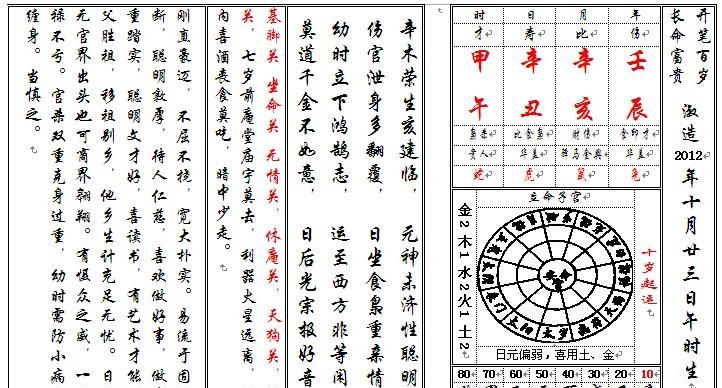 开笔百岁
长命富贵
淑造 2012 年十月廿三日午时生
时 日 月 年
才 比 伤
甲 辛 辛 壬
午 丑 亥 辰
枭杀 比金枭 财伤 金印才
贵人 华盖 驿马金舆 华盖
蛇 虎 鼠
立命子宫
十岁起运
金2木1水2火1土2
日元偏弱,喜用土、金
80 70 60 50 40 30 20 10
辛木荣生亥建临, 元神未济性聪明
伤官泄身多翻覆, 日坐食枭重叠情
幼时立下鸿鹄志, 运至西方非等闲
莫道千金不如意, 日后光宗报好音
墓脚关,坐命关,无情关,休庵关,天狗关,
关,七岁前庵堂庙宇莫去,利器火星远离,
内喜酒丧食莫吃,暗中少走。
刚直豪迈,不屈不挠,宽大朴实。易流于固
断,聪明敦厚,待人仁慈,喜欢做好事,做
重踏实,聪明文才好,喜读书,有艺术才能
父胜祖,移祖别乡,他乡生计充足无忧。日
无官界出头也可商界翱翔。有慑众之威,一
禄不亏。官杀双重克身过重,幼时需防小病
缠身。当慎之。